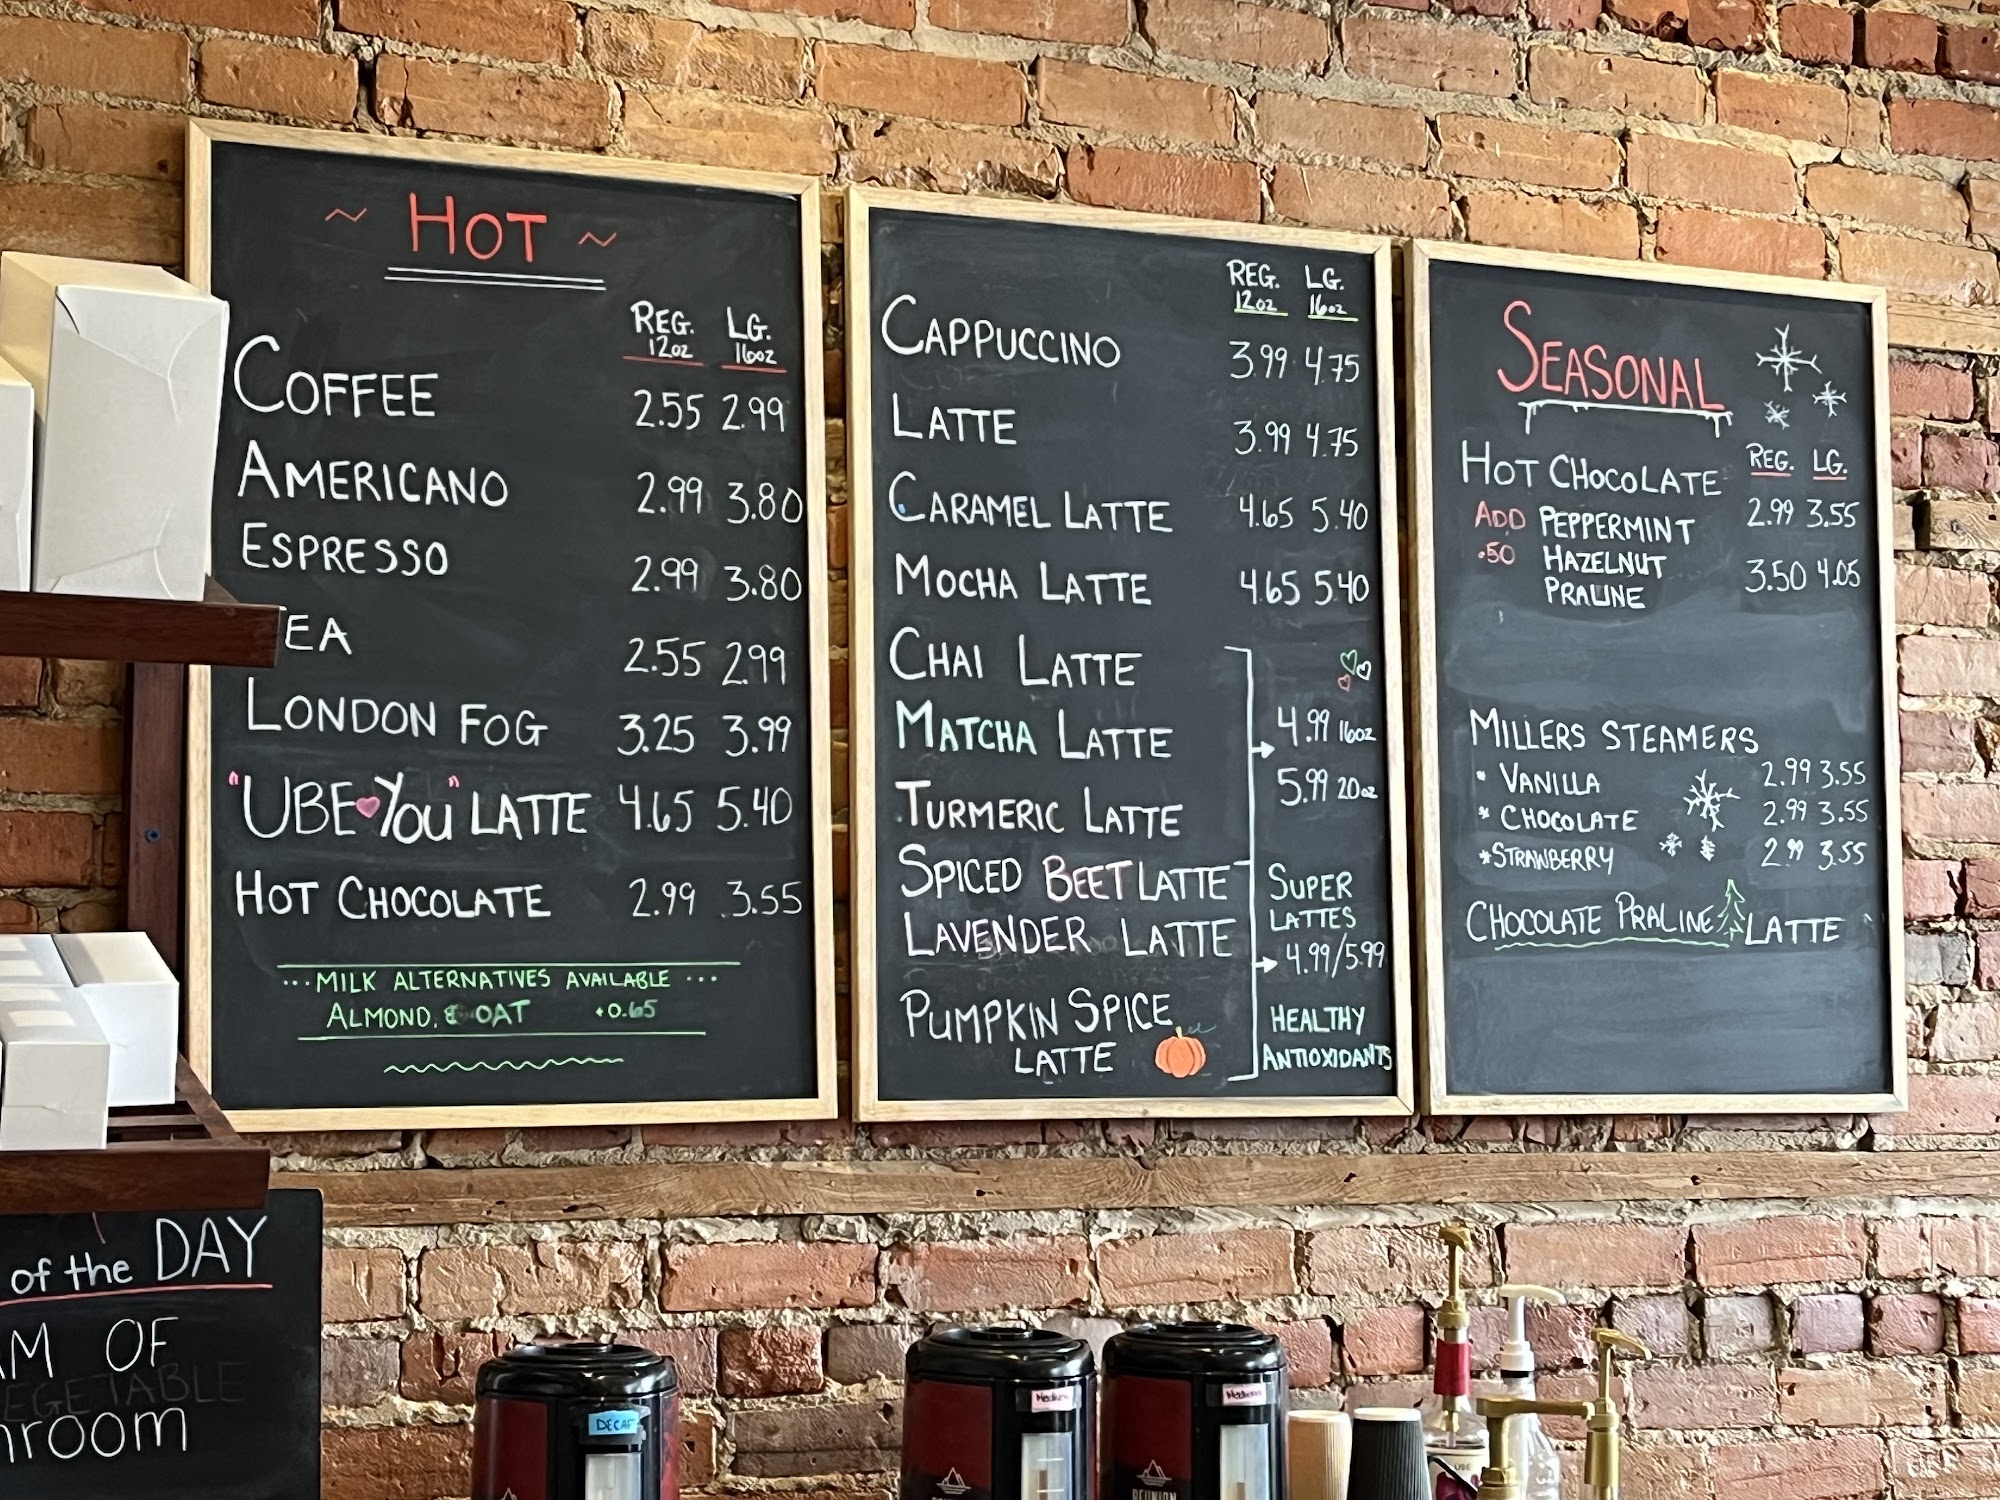 ~ HOT ~
REG. LG.
12oz 16oz
COFFEE 2.55 2.99
AMERICANO 2.99 3.80
ESPRESSO 2.99 3.80
EA 2.55 2.99
LONDON FOG 3.25 3.99
"UBE YOU" LATTE 4.65 5.40
HOT CHOCOLATE 2.99 3.55
...MILK ALTERNATIVES AVAILABLE ...
ALMOND, & OAT +0.65
REG. LG.
12oz 16oz
CAPPUCCINO 3.99 4.75
LATTE 3.99 4.75
CARAMEL LATTE 4.65 5.40
MOCHA LATTE 4.65 5.40
CHAI LATTE
MATCHA LATTE
TURMERIC LATTE
SPICED BEET LATTE
LAVENDER LATTE
PUMPKIN SPICE
LATTE
4.99 16oz
5.99 20oz
SUPER
LATTES
4.99/5.99
HEALTHY
ANTIOXIDANTS
SEASONAL
REG. LG.
HOT CHOCOLATE 2.99 3.55
ADD PEPPERMINT
.50 HAZELNUT 3.50 4.05
PRALINE
MILLERS STEAMERS
* VANILLA 2.99 3.55
* CHOCOLATE 2.99 3.55
*STRAWBERRY 2.99 3.55
CHOCOLATE PRALINE LATTE
of the DAY
AM OF
VEGETABLE
hroom
DECAF
Medium
Medium
REUNION